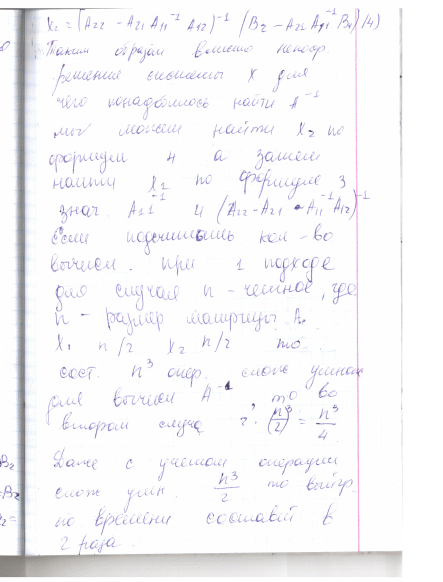 X₂ = (A₂₂ - A₂₁ A₁₁⁻¹ A₁₂)⁻¹ (B₂ - A₂₁ A₁₁⁻¹ B₁) (4)
Таким образом вместо
решения системы X для
чего понадобилось найти A⁻¹
мы можем найти X₂ по
формуле 4 а затем
найти X₁ по формуле 3
знач. A₁₁⁻¹ и (A₂₂ - A₂₁ · A₁₁⁻¹ A₁₂)⁻¹
Если подсчитать кол-во
вычисл. при 1 подходе
для случая n - четное, где
n - размер матрицы A.
X₁ n/2 X₂ n/2 то
сост. n³ опер. слож умнож
для вычисл A⁻¹, то во
втором случа 2·(n/2)³ = n³/4
Даже с учетом операции
слож умн. n³/2 то выигр.
по времени составит в
2 раза.
B₂
=B₂